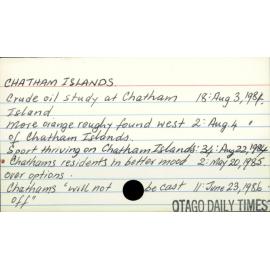 CHATHAM ISLANDS.
Crude oil study at Chatham 18: Aug 3, 1984.
Island
More orange roughy found west 2: Aug 4 "
of Chatham Islands.
Sport thriving on Chatham Islands: 34: Aug 22, 1984
Chathams residents in better mood 2: May 20, 1985
over options.
Chathams "will not be cast 11: June 23, 1986
off"
OTAGO DAILY TIMES